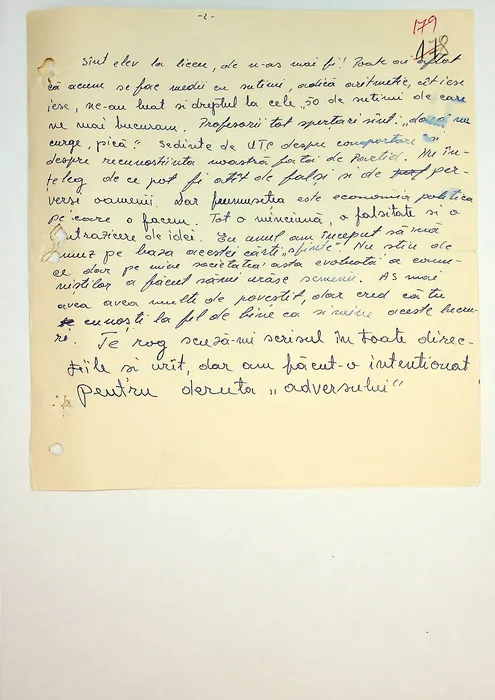 -2-
179
178
Sînt elev la liceu, de n-aș mai fi! Poate ai aflat
că acum se fac medii cu sutimi, adică aritmetic, cît iese
iese, ne-au luat și dreptul la cele „50 de sutimi de care
ne mai bucuram. Profesorii tot șpertari sînt: „dacă nu
curge, pică". Sedințe de UTC despre comportare și
despre recunoștința noastră față de Partid. Nu în-
țeleg de ce pot fi atît de falși și de per-
verși oamenii. Dar frumusețea este economia politică
pe care o facem. Tot o minciună, o falsitate și o
contrazicere de idei. Eu unul am început să mă
amuz pe baza acestei cărți „sfinte"! Nu știu de
ce dar pe mine societatea asta evoluată a comu-
niștilor a făcut să-mi urăsc semenii. Aș mai
avea avea multe de povestit, dar cred că tu
cunoști la fel de bine ca și mine aceste lucru-
ri. Te rog scuză-mi scrisul în toate direc-
țiile și urît, dar am făcut-o intenționat
pentru deruta „adversului"